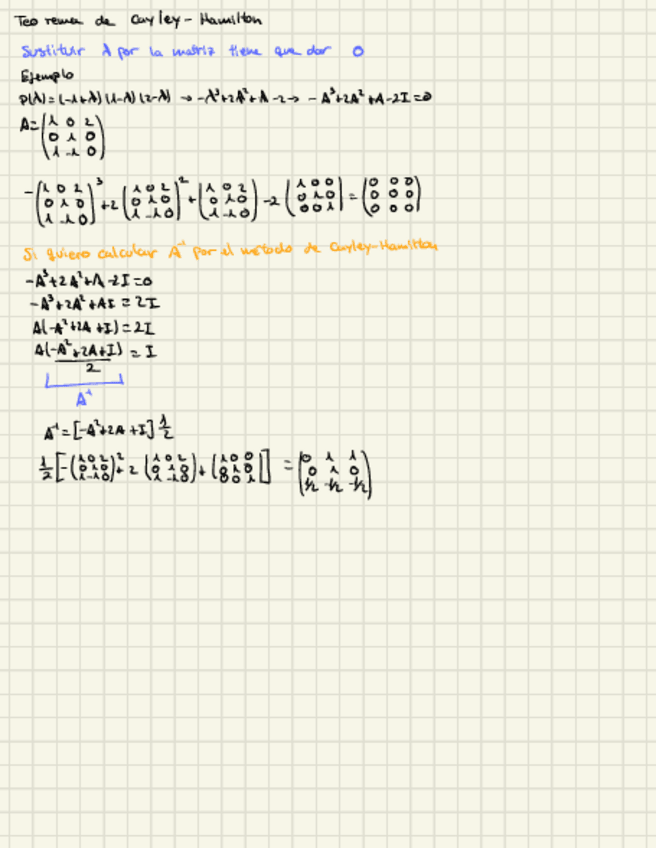 Teorema de Cayley-Hamilton
Sustituir λ por la matriz tiene que dar 0
Ejemplo
P(λ)=(-1+λ)(1-λ)(2-λ) → -λ³+2λ²+λ-2 → -A³+2A²+A-2I=0
A=(1 0 2
0 1 0
1 -1 0)
-(1 0 2 / 0 1 0 / 1 -1 0)³+2(1 0 2 / 0 1 0 / 1 -1 0)²+(1 0 2 / 0 1 0 / 1 -1 0)-2(1 0 0 / 0 1 0 / 0 0 1)=(0 0 0 / 0 0 0 / 0 0 0)
Si quiero calcular A⁻¹ por el método de Cayley-Hamilton
-A³+2A²+A-2I=0
-A³+2A²+AI=2I
A(-A²+2A+I)=2I
A(-A²+2A+I)/2=I
A⁻¹
A⁻¹=[-A²+2A+I]1/2
1/2[-(1 0 2 / 0 1 0 / 1 -1 0)²+2(1 0 2 / 0 1 0 / 1 -1 0)+(1 0 0 / 0 1 0 / 0 0 1)]=(0 1 1 / 0 1 0 / 1/2 -1/2 -1/2)